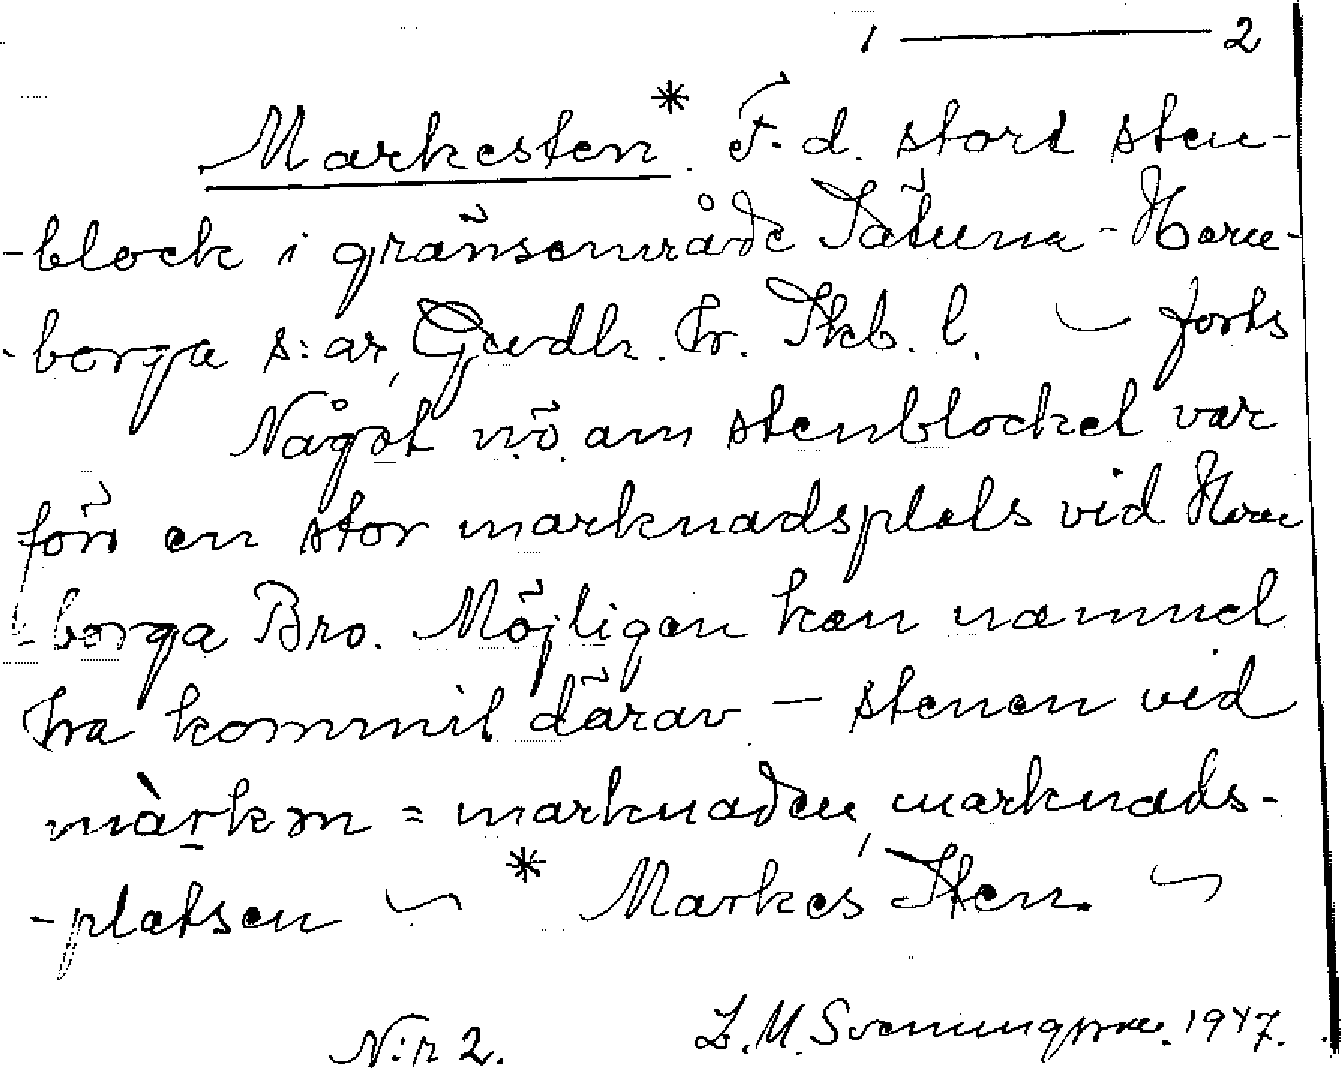 1 — 2
Markesten.* F. d. stort sten-
-block i gränsområde Tåtuna - Horn-
-borga s:ar, Gudh. hr. Skb. l. ~ forts
Något n.ö. om stenblocket var
förr en stor marknadsplats vid Horn
-borga Bro. Möjligen kan namnet
ha kommit därav — stenen vid
màrkm = marknaden, marknads-
-platsen ~ * Markes Sten. ~
N:r 2. L. M. Svenungsson. 1947.